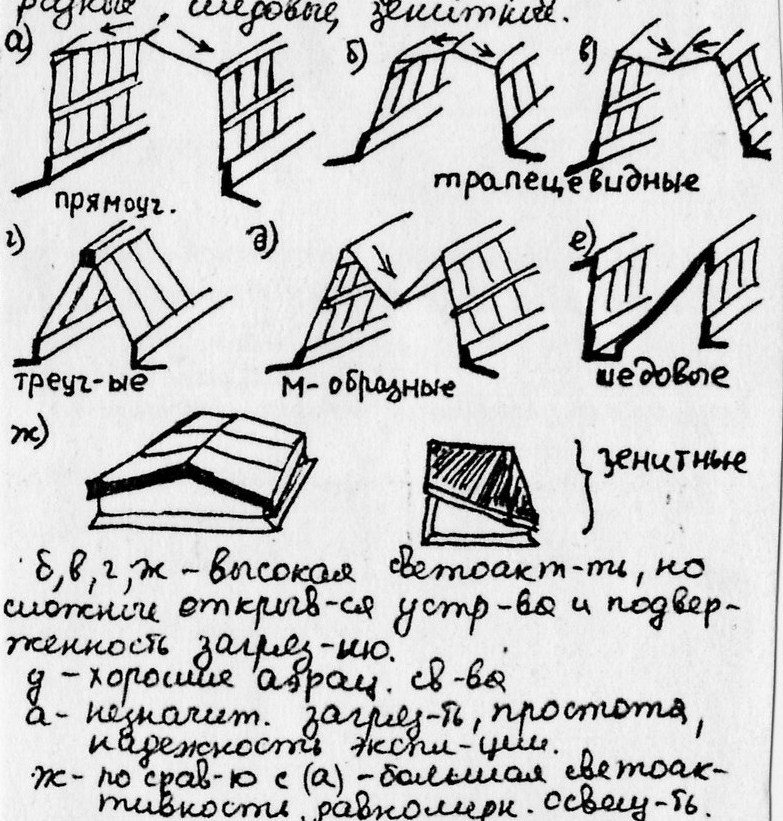 шедовые, зенитные.
а) б) в)
прямоуг.
трапецевидные
г) д) е)
треуг-ые
м-образные
шедовые
ж)
зенитные
б, в, г, ж - высокая светоакт-ть, но
сложные открыв-ся устр-ва и подвер-
женность загряз-ню.
д - хорошие аэрац. св-ва
а - незначит. загряз-ть, простота,
надежность экспл-ции.
ж - по срав-ю с (а) - большая светоак-
тивность, равномерн. освещ-ть.